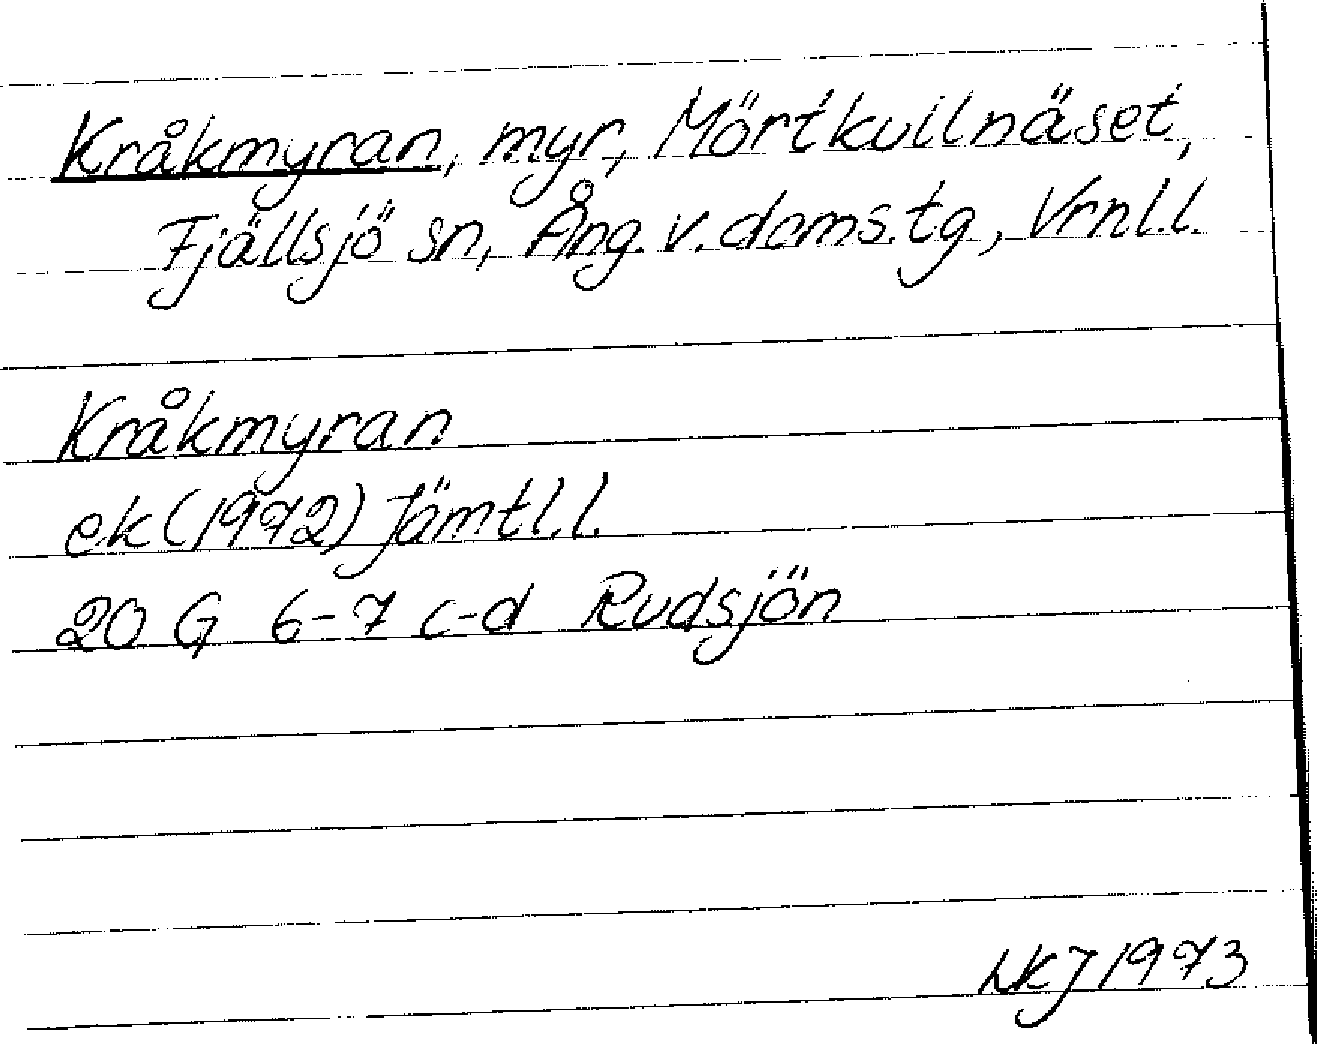 Kråkmyran, myr, Mörtkullnäset,
Fjällsjö sn, Ång. v. doms.tg, Vrnl.l.
Kråkmyran
ek (1972) Jämtl.l.
20 G 6-7 c-d Rudsjön
NKJ 1973